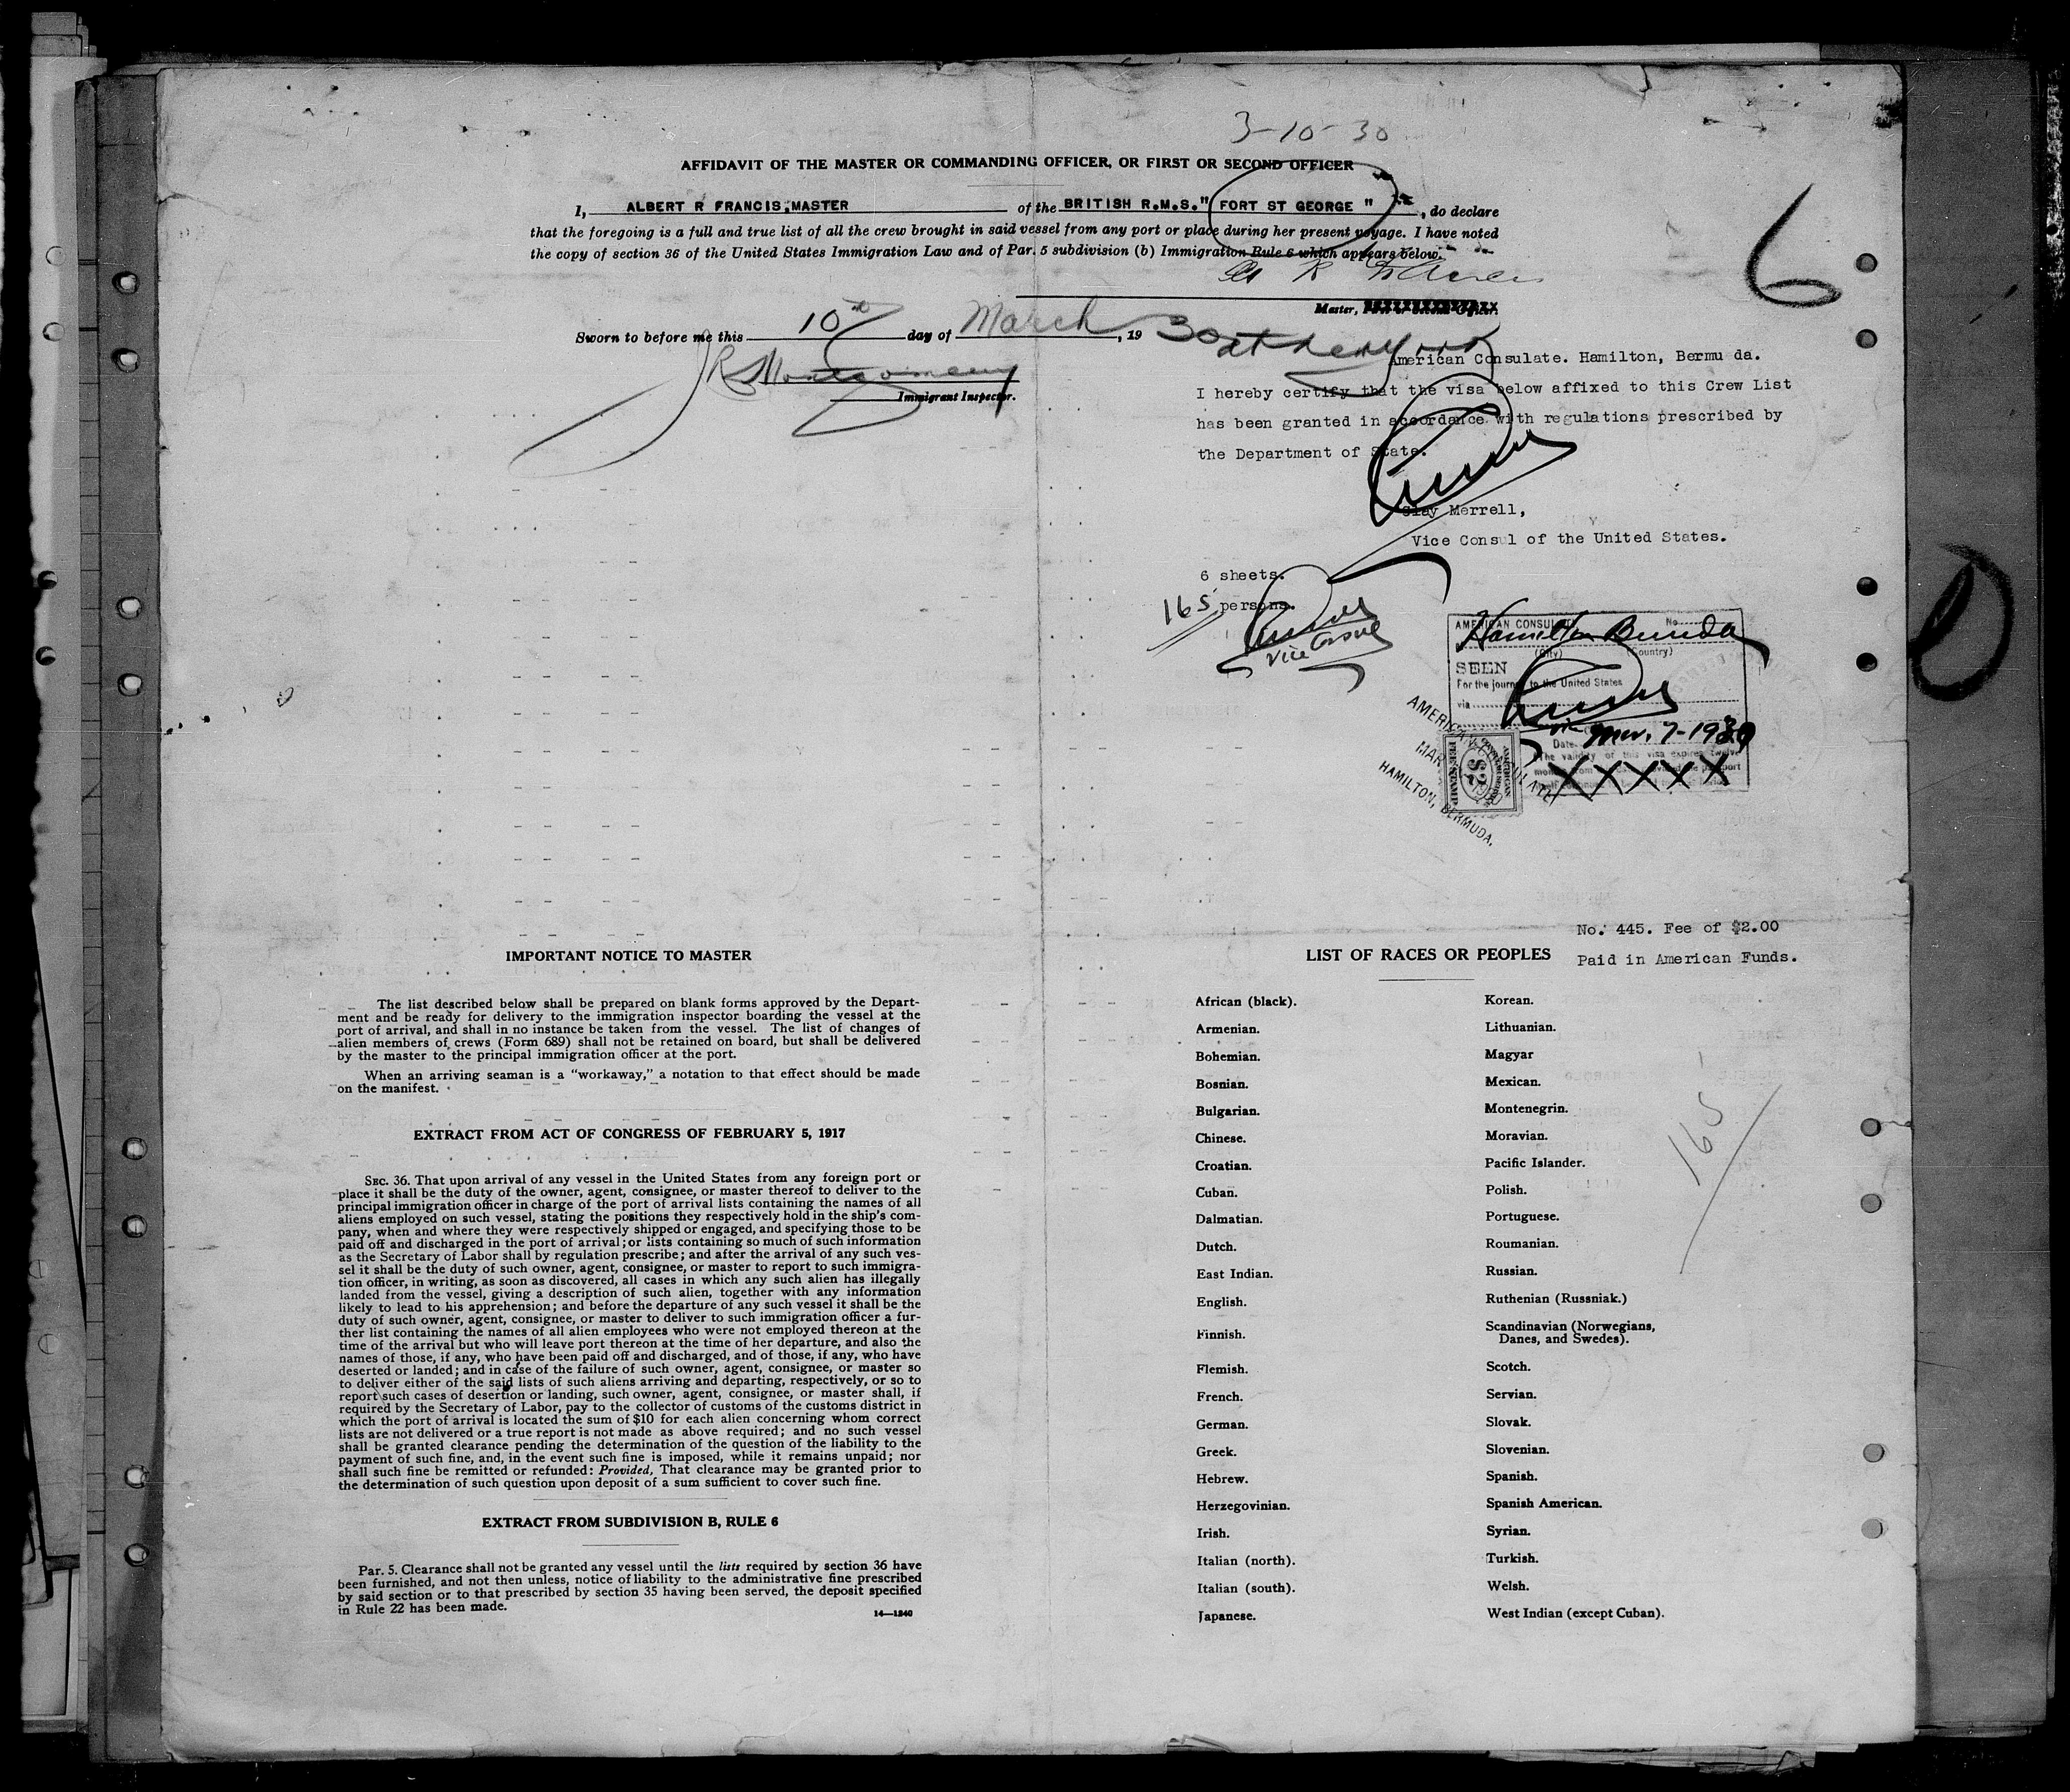 3-10-30
AFFIDAVIT OF THE MASTER OR COMMANDING OFFICER, OR FIRST OR SECOND OFFICER
I, ALBERT R FRANCIS, MASTER of the BRITISH R.M.S." FORT ST GEORGE ", do declare
that the foregoing is a full and true list of all the crew brought in said vessel from any port or place during her present voyage. I have noted
the copy of section 36 of the United States Immigration Law and of Par. 5 subdivision (b) Immigration Rule 6 which appears below.
6
Master,
Sworn to before me this 10th day of March, 1930
at New York
Immigrant Inspector.
American Consulate. Hamilton, Bermu da.
I hereby certify that the visa below affixed to this Crew List
has been granted in accordance with regulations prescribed by
the Department of State.
Clay Merrell,
Vice Consul of the United States.
6 sheets.
165 persons.
Vice Consul
AMERICAN CONSULATE No.
Hamilton Bermuda
(City) (Country)
SEEN
For the journey to the United States
via
Date Mar. 7-1930
The validity of this visa expires twelve
XXXXX
AMERICAN CONSULATE
MAR 1930
HAMILTON, BERMUDA.
AMERICAN
$2
FEE STAMP
No. 445. Fee of $2.00
Paid in American Funds.
IMPORTANT NOTICE TO MASTER
The list described below shall be prepared on blank forms approved by the Depart-
ment and be ready for delivery to the immigration inspector boarding the vessel at the
port of arrival, and shall in no instance be taken from the vessel. The list of changes of
alien members of crews (Form 689) shall not be retained on board, but shall be delivered
by the master to the principal immigration officer at the port.
When an arriving seaman is a "workaway," a notation to that effect should be made
on the manifest.
EXTRACT FROM ACT OF CONGRESS OF FEBRUARY 5, 1917
SEC. 36. That upon arrival of any vessel in the United States from any foreign port or
place it shall be the duty of the owner, agent, consignee, or master thereof to deliver to the
principal immigration officer in charge of the port of arrival lists containing the names of all
aliens employed on such vessel, stating the positions they respectively hold in the ship's com-
pany, when and where they were respectively shipped or engaged, and specifying those to be
paid off and discharged in the port of arrival; or lists containing so much of such information
as the Secretary of Labor shall by regulation prescribe; and after the arrival of any such ves-
sel it shall be the duty of such owner, agent, consignee, or master to report to such immigra-
tion officer, in writing, as soon as discovered, all cases in which any such alien has illegally
landed from the vessel, giving a description of such alien, together with any information
likely to lead to his apprehension; and before the departure of any such vessel it shall be the
duty of such owner, agent, consignee, or master to deliver to such immigration officer a fur-
ther list containing the names of all alien employees who were not employed thereon at the
time of the arrival but who will leave port thereon at the time of her departure, and also the
names of those, if any, who have been paid off and discharged, and of those, if any, who have
deserted or landed; and in case of the failure of such owner, agent, consignee, or master so
to deliver either of the said lists of such aliens arriving and departing, respectively, or so to
report such cases of desertion or landing, such owner, agent, consignee, or master shall, if
required by the Secretary of Labor, pay to the collector of customs of the customs district in
which the port of arrival is located the sum of $10 for each alien concerning whom correct
lists are not delivered or a true report is not made as above required; and no such vessel
shall be granted clearance pending the determination of the question of the liability to the
payment of such fine, and, in the event such fine is imposed, while it remains unpaid; nor
shall such fine be remitted or refunded: Provided, That clearance may be granted prior to
the determination of such question upon deposit of a sum sufficient to cover such fine.
EXTRACT FROM SUBDIVISION B, RULE 6
Par. 5. Clearance shall not be granted any vessel until the lists required by section 36 have
been furnished, and not then unless, notice of liability to the administrative fine prescribed
by said section or to that prescribed by section 35 having been served, the deposit specified
in Rule 22 has been made.
14—1240
LIST OF RACES OR PEOPLES
African (black).
Armenian.
Bohemian.
Bosnian.
Bulgarian.
Chinese.
Croatian.
Cuban.
Dalmatian.
Dutch.
East Indian.
English.
Finnish.
Flemish.
French.
German.
Greek.
Hebrew.
Herzegovinian.
Irish.
Italian (north).
Italian (south).
Japanese.
Korean.
Lithuanian.
Magyar
Mexican.
Montenegrin.
Moravian.
Pacific Islander.
Polish.
Portuguese.
Roumanian.
Russian.
Ruthenian (Russniak.)
Scandinavian (Norwegians,
Danes, and Swedes).
Scotch.
Servian.
Slovak.
Slovenian.
Spanish.
Spanish American.
Syrian.
Turkish.
Welsh.
West Indian (except Cuban).
165